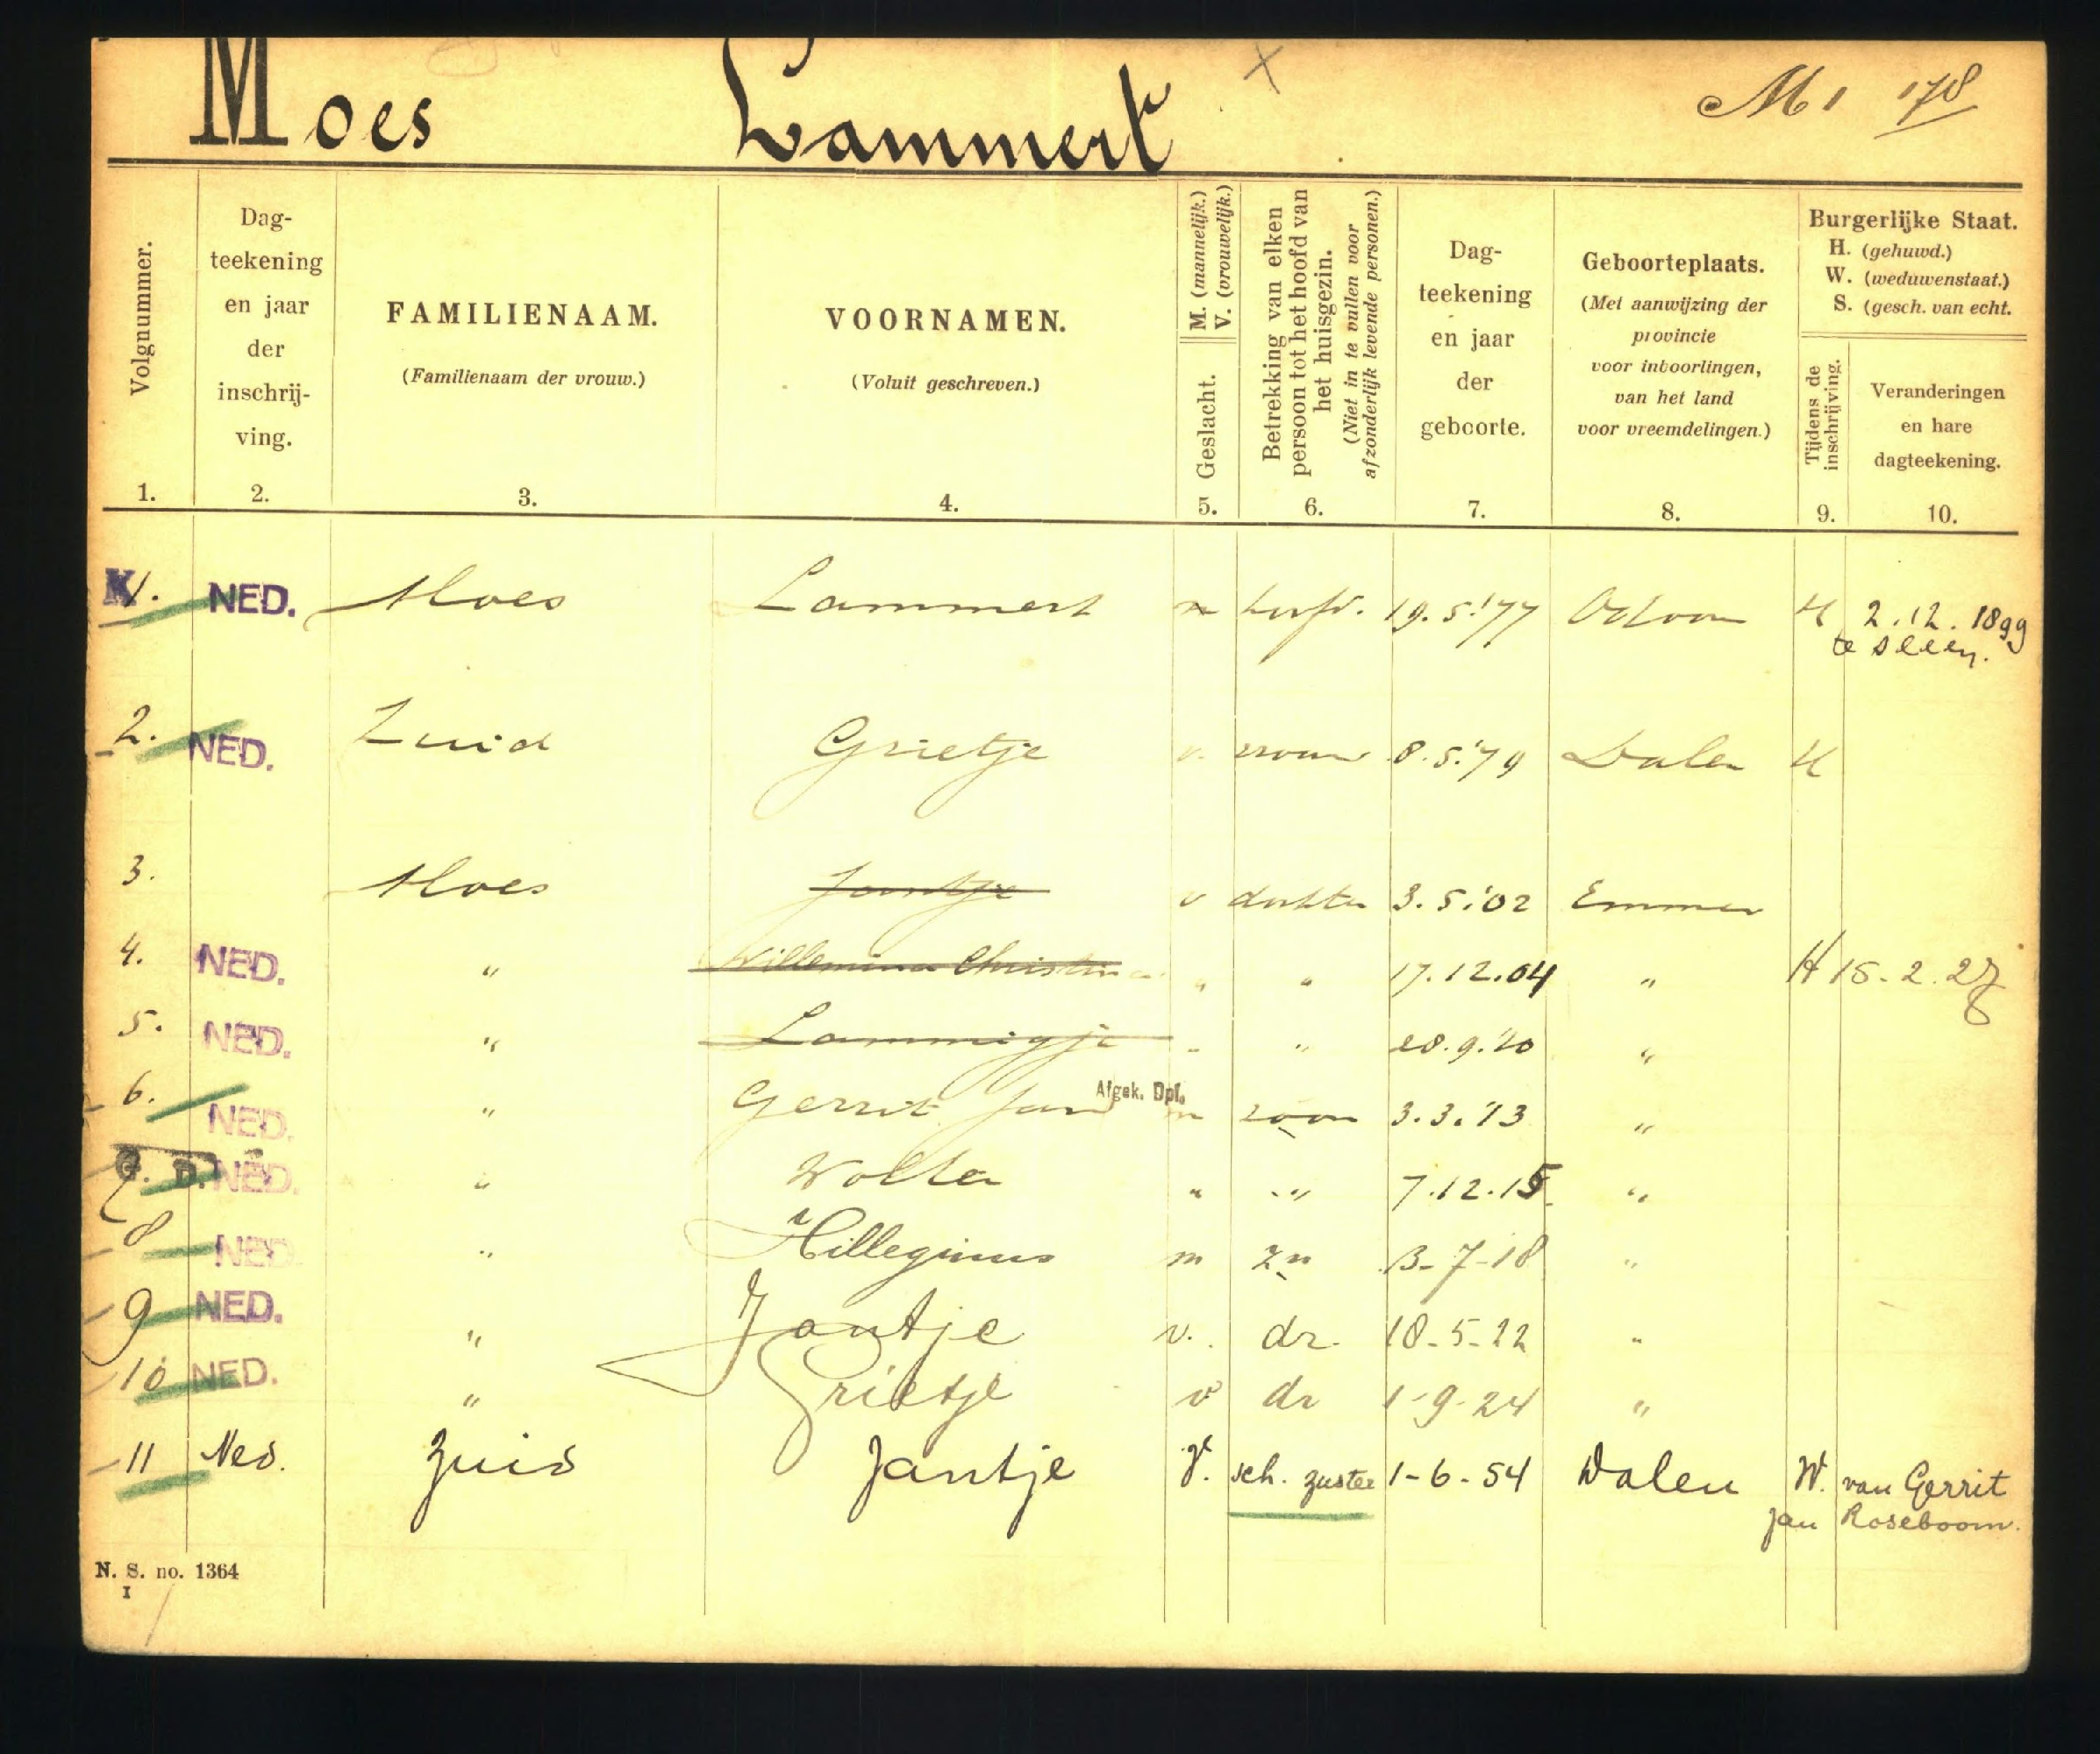 Moes Lammert M1 178
Volgnummer.
1.
Dag-
teekening
en jaar
der
inschrij-
ving.
2.
FAMILIENAAM.
(Familienaam der vrouw.)
3.
VOORNAMEN.
(Voluit geschreven.)
4.
M. (mannelijk.)
V. (vrouwelijk.)
Geslacht.
5.
Betrekking van elken
persoon tot het hoofd van
het huisgezin.
(Niet in te vullen voor
afzonderlijk levende personen.)
6.
Dag-
teekening
en jaar
der
geboorte.
7.
Geboorteplaats.
(Met aanwijzing der
provincie
voor inboorlingen,
van het land
voor vreemdelingen.)
8.
Burgerlijke Staat.
H. (gehuwd.)
W. (weduwenstaat.)
S. (gesch. van echt.
Tijdens de
inschrijving.
9.
Veranderingen
en hare
dagteekening.
10.
K 1. NED. Moes Lammert m hoofd. 19.5.'77 Odoorn H 2.12.1899
te Sleen.
2. NED. Zuid Grietje v. vrouw 8.5.'79 Dalen H
3. Moes Jantje v dochter 3.5.'02 Emmen
4. NED. " Willemina Christina " " 17.12.04 " H 15-2.28
5. NED. " Lammigje " " 28.9.'10 "
6. NED. " Gerrit Jan Afgek. Dpl. m zoon 3.3.'13 "
7. D. NED. " Wolter " " 7.12.15 "
8 NED. " Hilleginus m zn 13-7-18 "
9 NED. " Jantje v. dr. 18-5-22 "
10 NED. " Grietje v dr 1-9-24 "
11 Ned. Zuid Jantje V. sch. zuster 1-6-54 Dalen W. van Gerrit
Jan Roseboom.
N. S. no. 1364
I